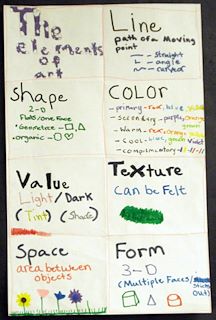 The
elements
of
art
Line
path of a moving
point
- straight
- angle
- curved
Shape
2-D
Flats/one Face
• Geometric -
• organic -
COLOR
- primary - red, blue,
- Secondary - purple, orange,
green
- Warm - red, orange, yellow
- Cool - blue, green, violet
- complimentary -
Value
Light/Dark
(Tint) (Shade)
Texture
can be Felt
Space
area between
objects
Form
3-D
(Multiple Faces/
Sticks
out)